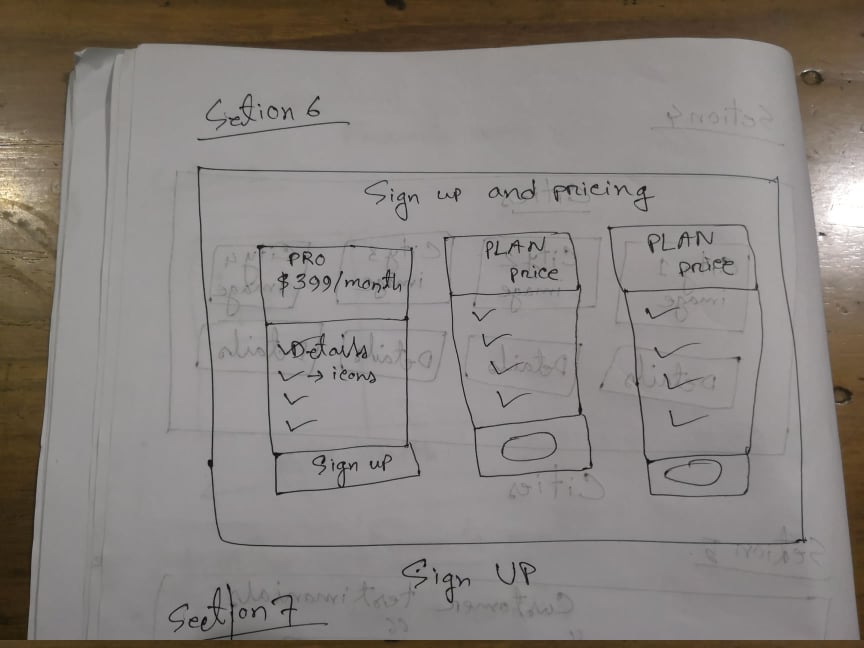 Section 6
Sign up and pricing
PRO
$399/month
Details
→ icons
Sign up
PLAN
price
PLAN
price
Sign UP
Section 7